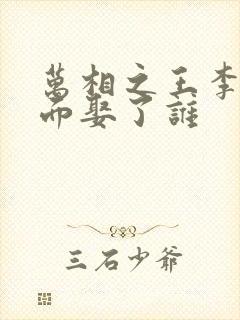 萬相之王李
而娶了誰
三石少爺